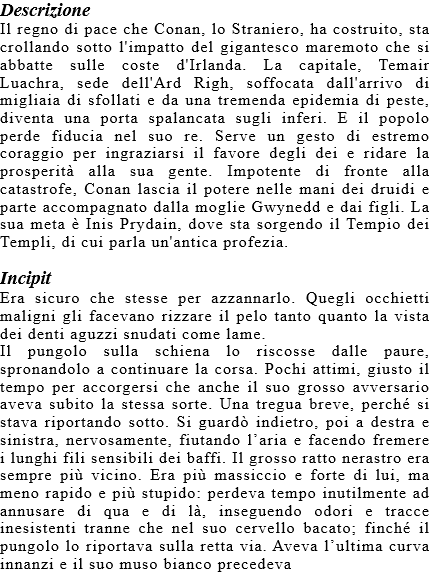 Descrizione
Il regno di pace che Conan, lo Straniero, ha costruito, sta
crollando sotto l'impatto del gigantesco maremoto che si
abbatte sulle coste d'Irlanda. La capitale, Temair
Luachra, sede dell'Ard Righ, soffocata dall'arrivo di
migliaia di sfollati e da una tremenda epidemia di peste,
diventa una porta spalancata sugli inferi. E il popolo
perde fiducia nel suo re. Serve un gesto di estremo
coraggio per ingraziarsi il favore degli dei e ridare la
prosperità alla sua gente. Impotente di fronte alla
catastrofe, Conan lascia il potere nelle mani dei druidi e
parte accompagnato dalla moglie Gwynedd e dai figli. La
sua meta è Inis Prydain, dove sta sorgendo il Tempio dei
Templi, di cui parla un'antica profezia.
Incipit
Era sicuro che stesse per azzannarlo. Quegli occhietti
maligni gli facevano rizzare il pelo tanto quanto la vista
dei denti aguzzi snudati come lame.
Il pungolo sulla schiena lo riscosse dalle paure,
spronandolo a continuare la corsa. Pochi attimi, giusto il
tempo per accorgersi che anche il suo grosso avversario
aveva subito la stessa sorte. Una tregua breve, perché si
stava riportando sotto. Si guardò indietro, poi a destra e
sinistra, nervosamente, fiutando l’aria e facendo fremere
i lunghi fili sensibili dei baffi. Il grosso ratto nerastro era
sempre più vicino. Era più massiccio e forte di lui, ma
meno rapido e più stupido: perdeva tempo inutilmente ad
annusare di qua e di là, inseguendo odori e tracce
inesistenti tranne che nel suo cervello bacato; finché il
pungolo lo riportava sulla retta via. Aveva l’ultima curva
innanzi e il suo muso bianco precedeva